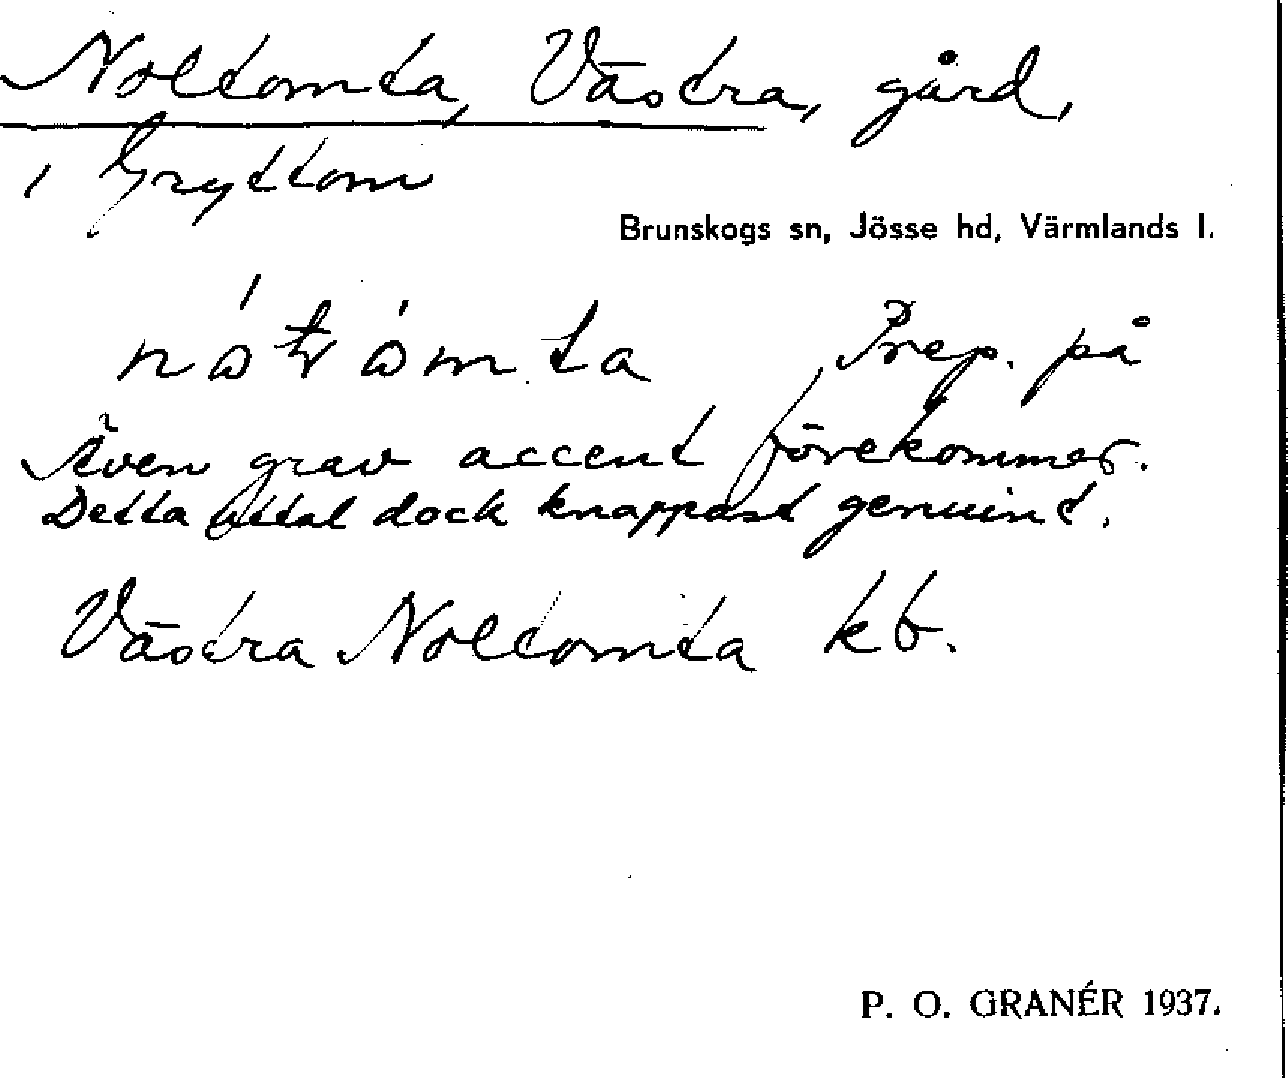 Noltomta, Västra, gård,
i Gryttom
Brunskogs sn, Jösse hd, Värmlands l.
Prep. på
Även grav accent förekommer.
Detta uttal dock knappast genuint.
Västra Noltomta kb.
P. O. GRANÉR 1937.